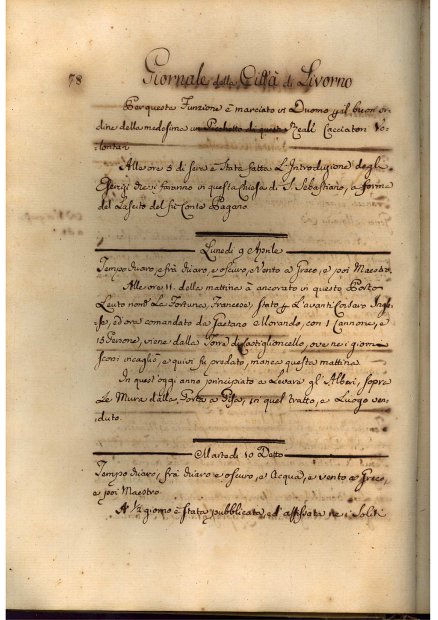 78 Giornale della Città di Livorno
Per questa Funzione è marciato in Duomo p il buon or-
dine della medesima un Picchetto di questi Reali Cacciatori Vo-
lontari
Alle ore 5 di sera è stata fatta L'Introduzione degli
Esercizi che si faranno in questa Chiesa di S. Sebastiano, a forma
del Lascito del Sig Conte Pagano
Lunedì 9 Aprile
Tempo chiaro, e frà chiaro, e oscuro, e Vento a Greco, e poi Maestro.
Alle ore 11. della mattina è ancorato in questo Porto
Leuto nom La Fortuna, Francese, stato p L'avanti Corsaro Ingle-
se, ed ora comandato da Gaetano Morando, con 1 Cannone, e
15 Persone, viene dalla Torre di Castiglioncello, ove nei giorni
scorsi incagliò, e quivi fu predato, manca questa mattina
In quest'oggi anno principiato a Levare gl'Alberi, sopra
Le Mura dalla Porta a Pisa, in quel tratto, e Luogo ven-
duto.
Martedì 10 Detto
Tempo chiaro, frà chiaro e oscuro, e Acqua, e vento a Greco,
e poi Maestro
A ½ giorno è stata pubblicata, ed affissata ne i Soliti